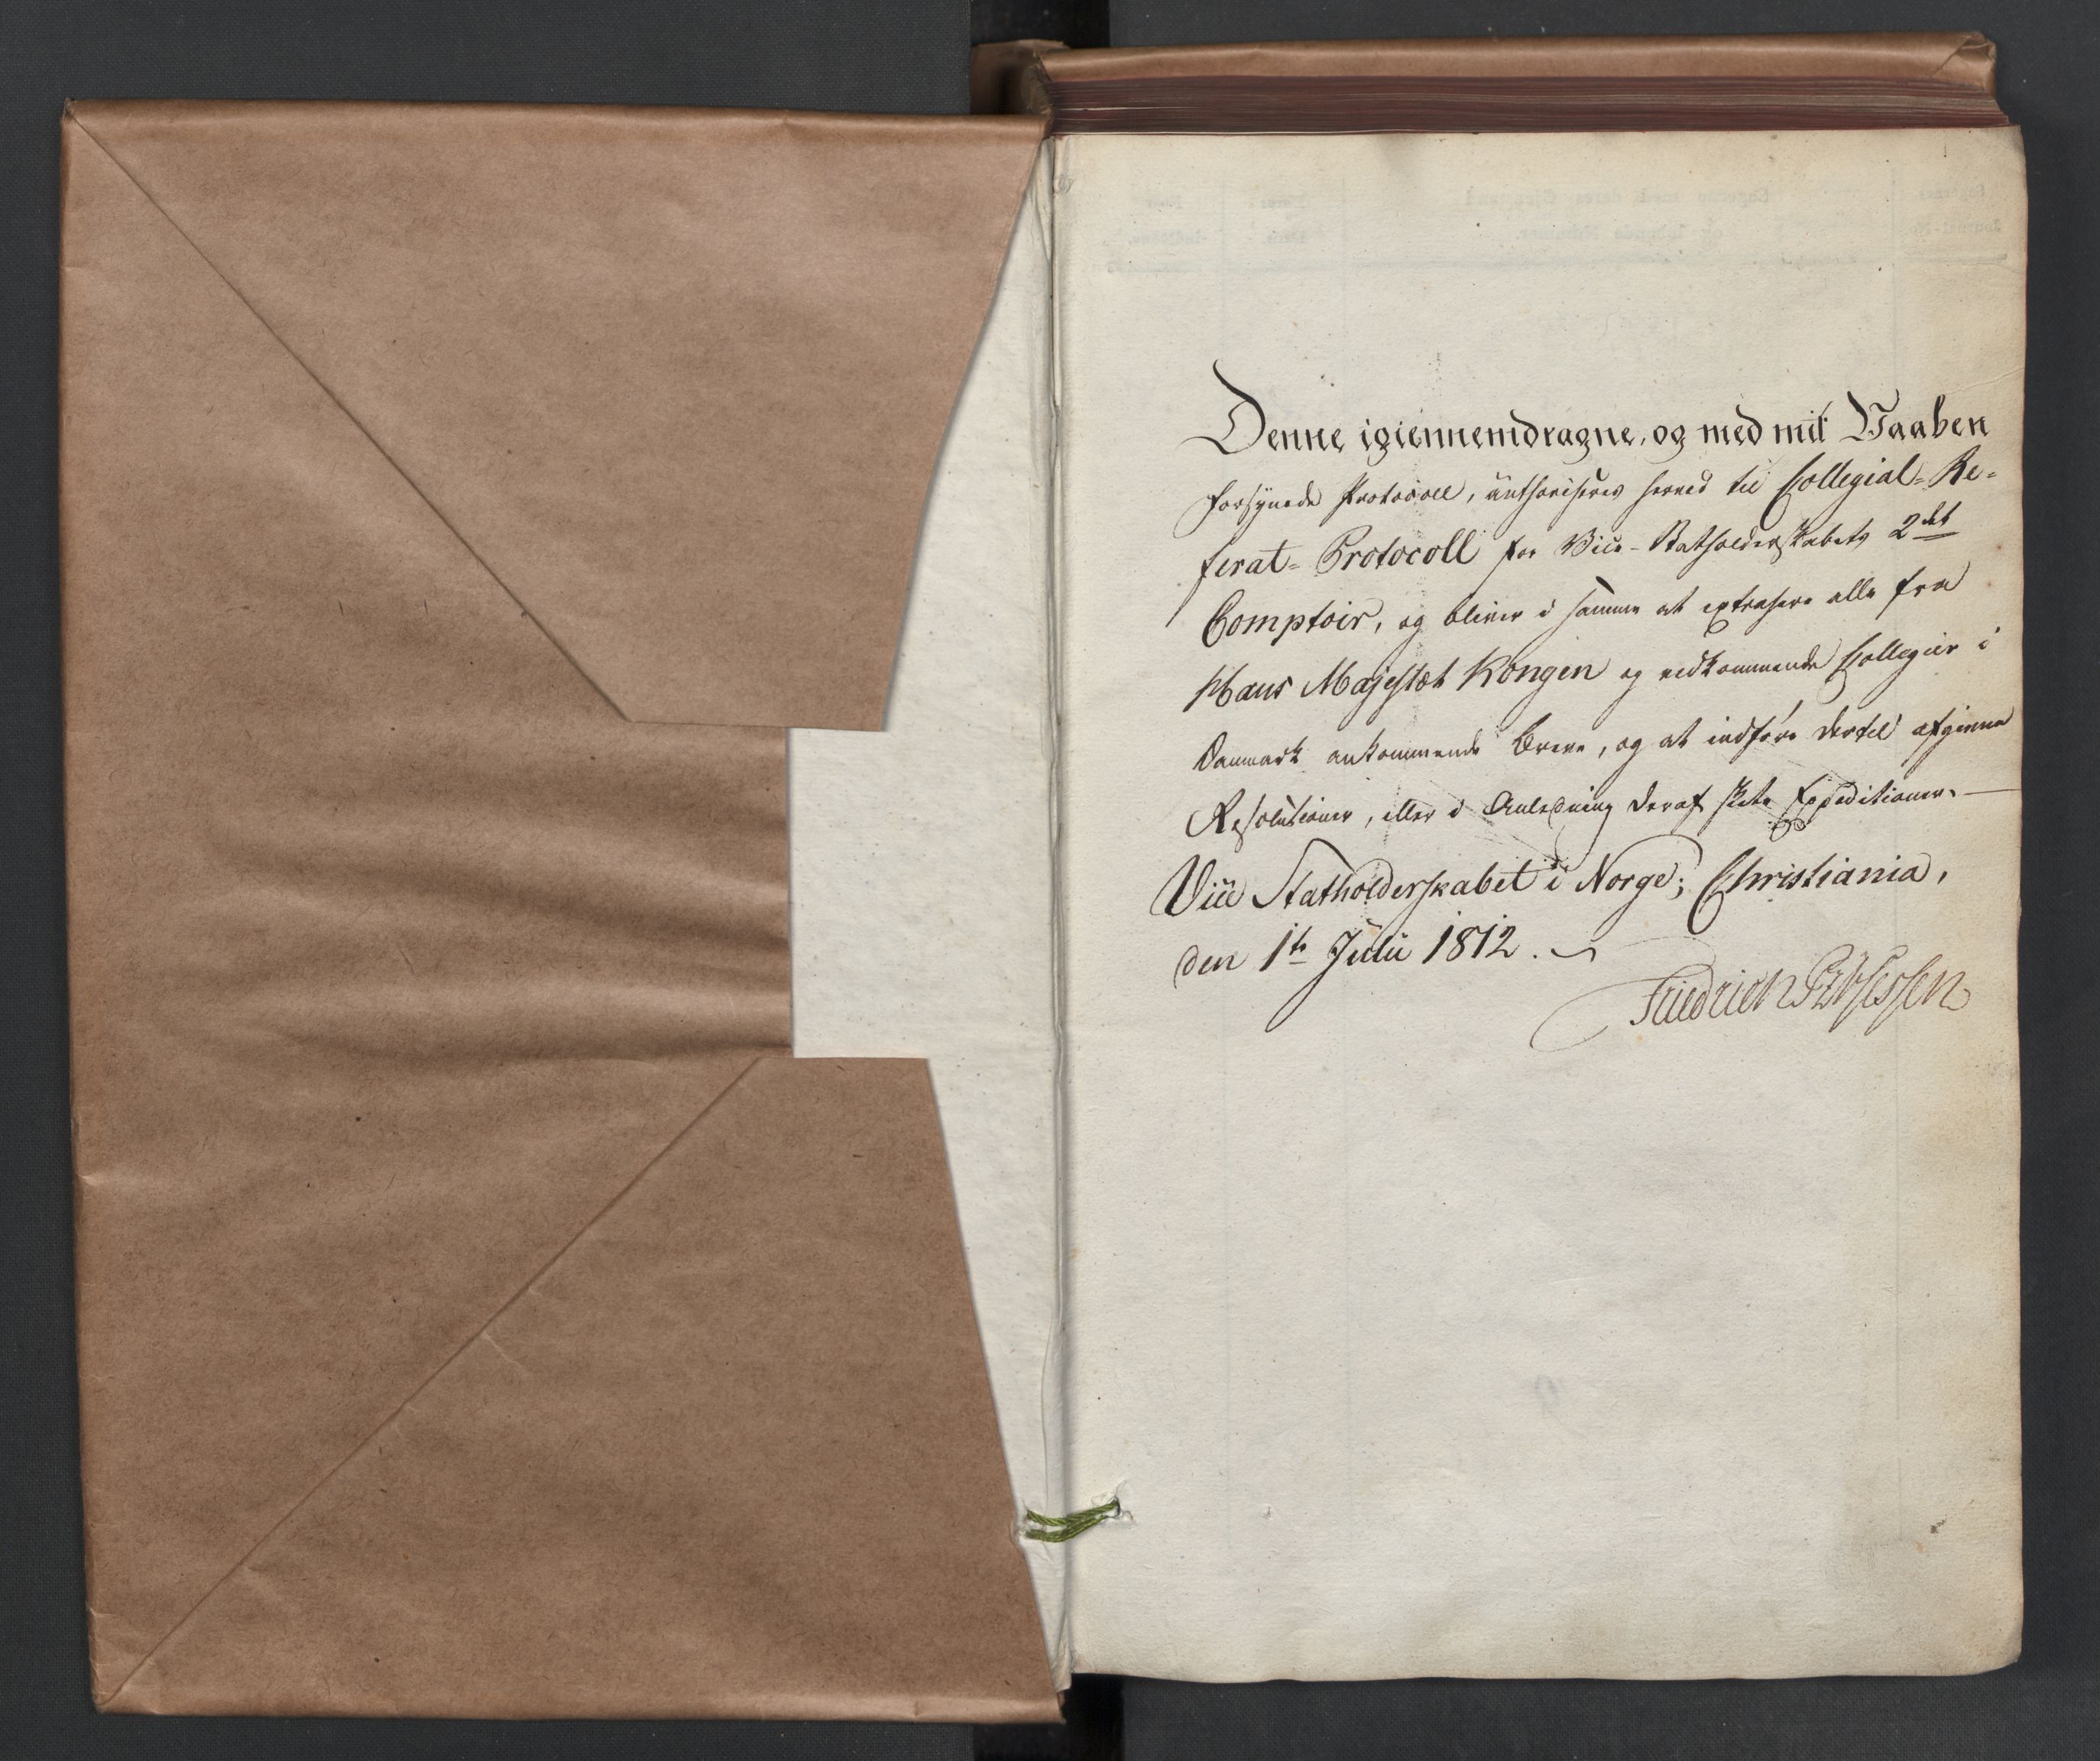 Denne igiennemdragne, og med mit Vaaben
forsynede Protocoll, authoriseres herved til Collegial-Re-
ferat-Protocoll for Vice-Statholderskabets 2det
Comptoir, og bliver i samme at extrahere alle fra
Hans Majestæt Kongen og vedkommende Collegier i
Danmark ankommende Breve, og at indføre dertil afgivne
Resolutioner, eller i Anledning deraf skete Expeditioner.
Vice Statholderskabet i Norge; Christiania,
den 1te Julii 1812.
Friedrich PzHessen